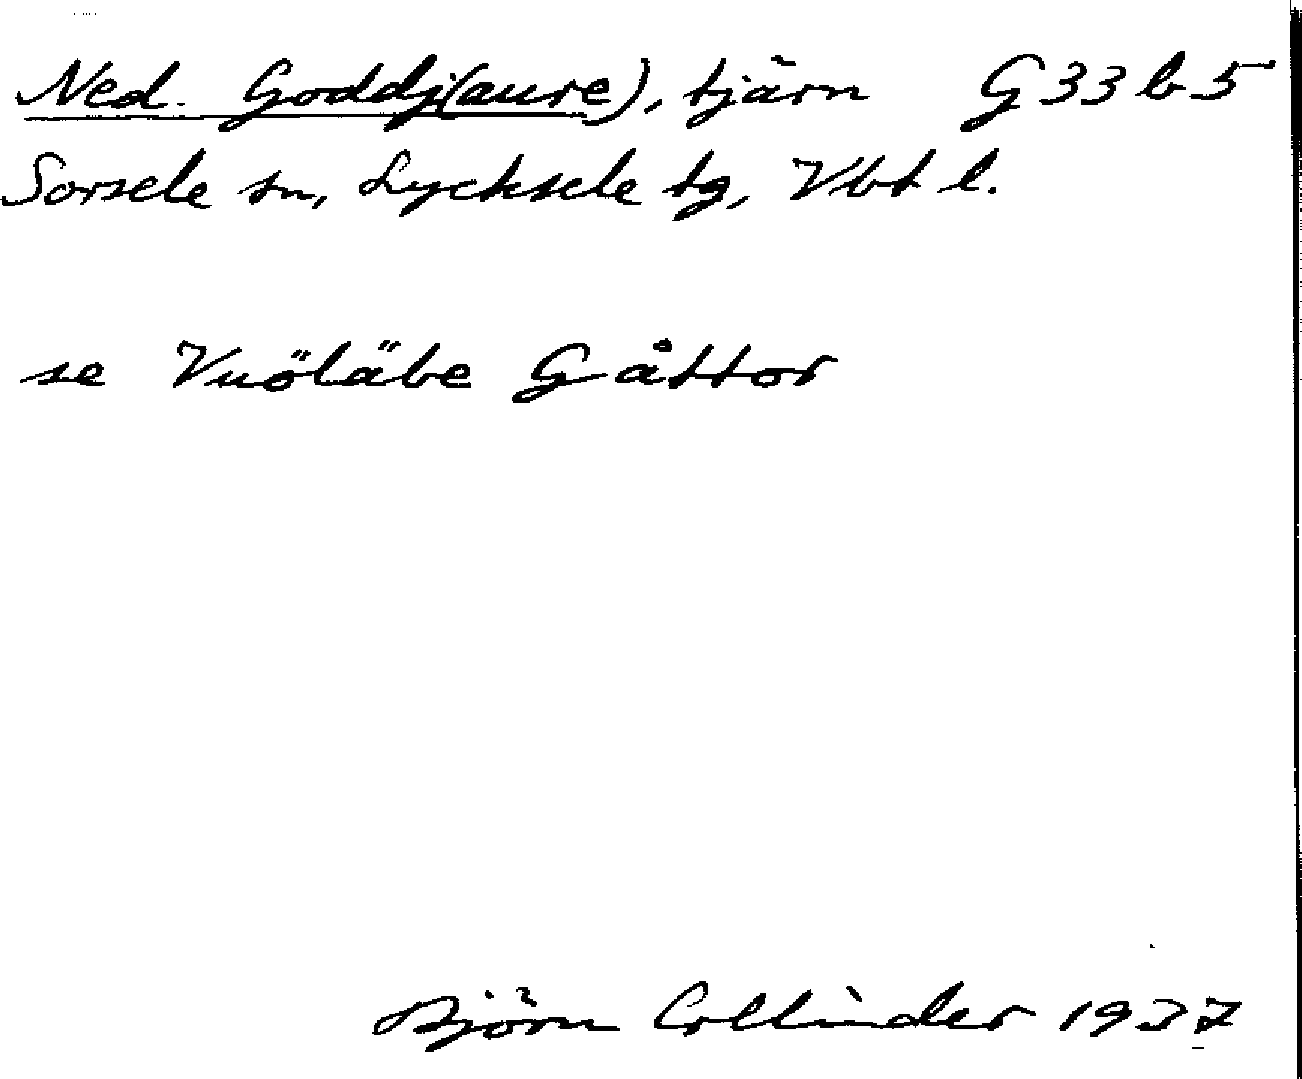 Ned. Goddj(aure), tjärn G 33 b 5
Sorsele sn, Lycksele tg, Vbt l.
se Vuöläbe Gåttor
Björn Collinder 1937